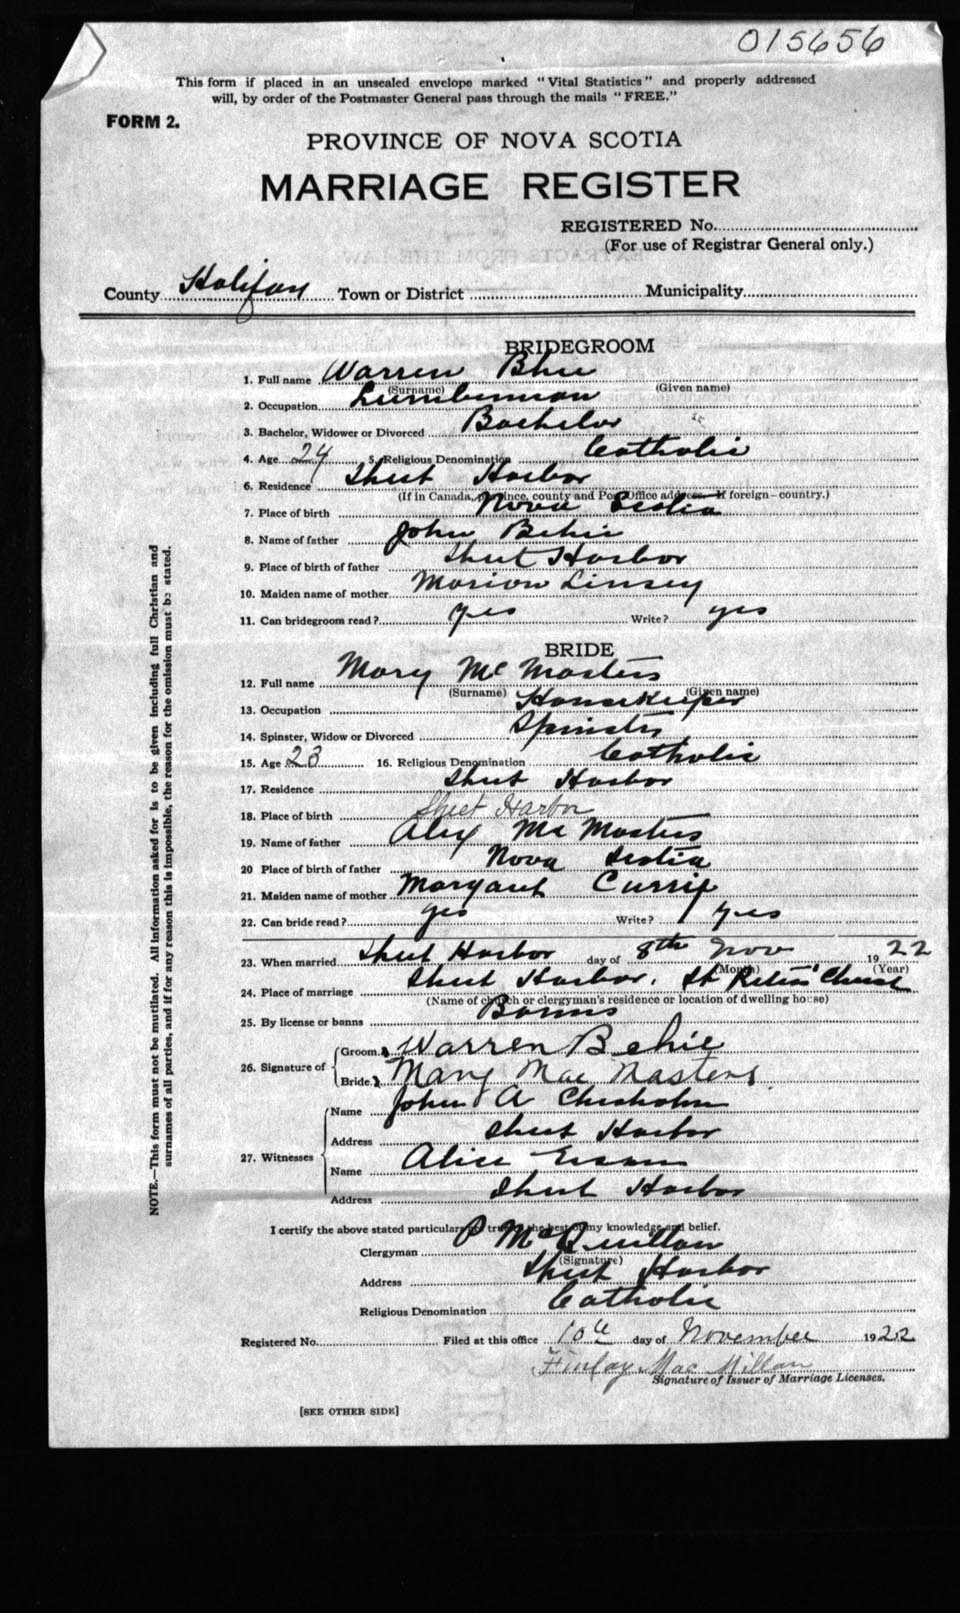 015656
This form if placed in an unsealed envelope marked "Vital Statistics" and properly addressed
will, by order of the Postmaster General pass through the mails "FREE."
FORM 2.
PROVINCE OF NOVA SCOTIA
MARRIAGE REGISTER
REGISTERED No.
(For use of Registrar General only.)
County Halifax Town or District Municipality
BRIDEGROOM
1. Full name Warren Bhie
(Surname) (Given name)
2. Occupation Lumberman
3. Bachelor, Widower or Divorced Bachelor
4. Age 24 5. Religious Denomination Catholic
6. Residence Sheet Harbor
(If in Canada, province, county and Post Office address. If foreign—country.)
7. Place of birth Nova Scotia
8. Name of father John Behie
9. Place of birth of father Sheet Harbor
10. Maiden name of mother Marion Linsey
11. Can bridegroom read? yes Write? yes
BRIDE
12. Full name Mary Mc Masters
(Surname) (Given name)
13. Occupation Housekeeper
14. Spinster, Widow or Divorced Spinster
15. Age 23 16. Religious Denomination Catholic
17. Residence Sheet Harbor
18. Place of birth Sheet Harbor
19. Name of father Alex Mc Masters
20 Place of birth of father Nova Scotia
21. Maiden name of mother Margaret Currie
22. Can bride read? yes Write? yes
23. When married Sheet Harbor day of 8th Nov 1922
(Month) (Year)
24. Place of marriage Sheet Harbor. St Peters' Church
(Name of church or clergyman's residence or location of dwelling house)
25. By license or banns Banns
26. Signature of Groom. Warren Behie
Bride. Mary Mac Masters.
27. Witnesses Name John A Chisholm
Address Sheet Harbor
Name Alice
Address Sheet Harbor
I certify the above stated particulars are true to the best of my knowledge and belief.
Clergyman P McQuillan
(Signature)
Address Sheet Harbor
Religious Denomination Catholic
Registered No. Filed at this office 10th day of November 1922
Finlay Mac Millan
Signature of Issuer of Marriage Licenses.
[SEE OTHER SIDE]
NOTE.—This form must not be mutilated. All information asked for is to be given including full Christian and
surnames of all parties, and if for any reason this is impossible, the reason for the omission must be stated.